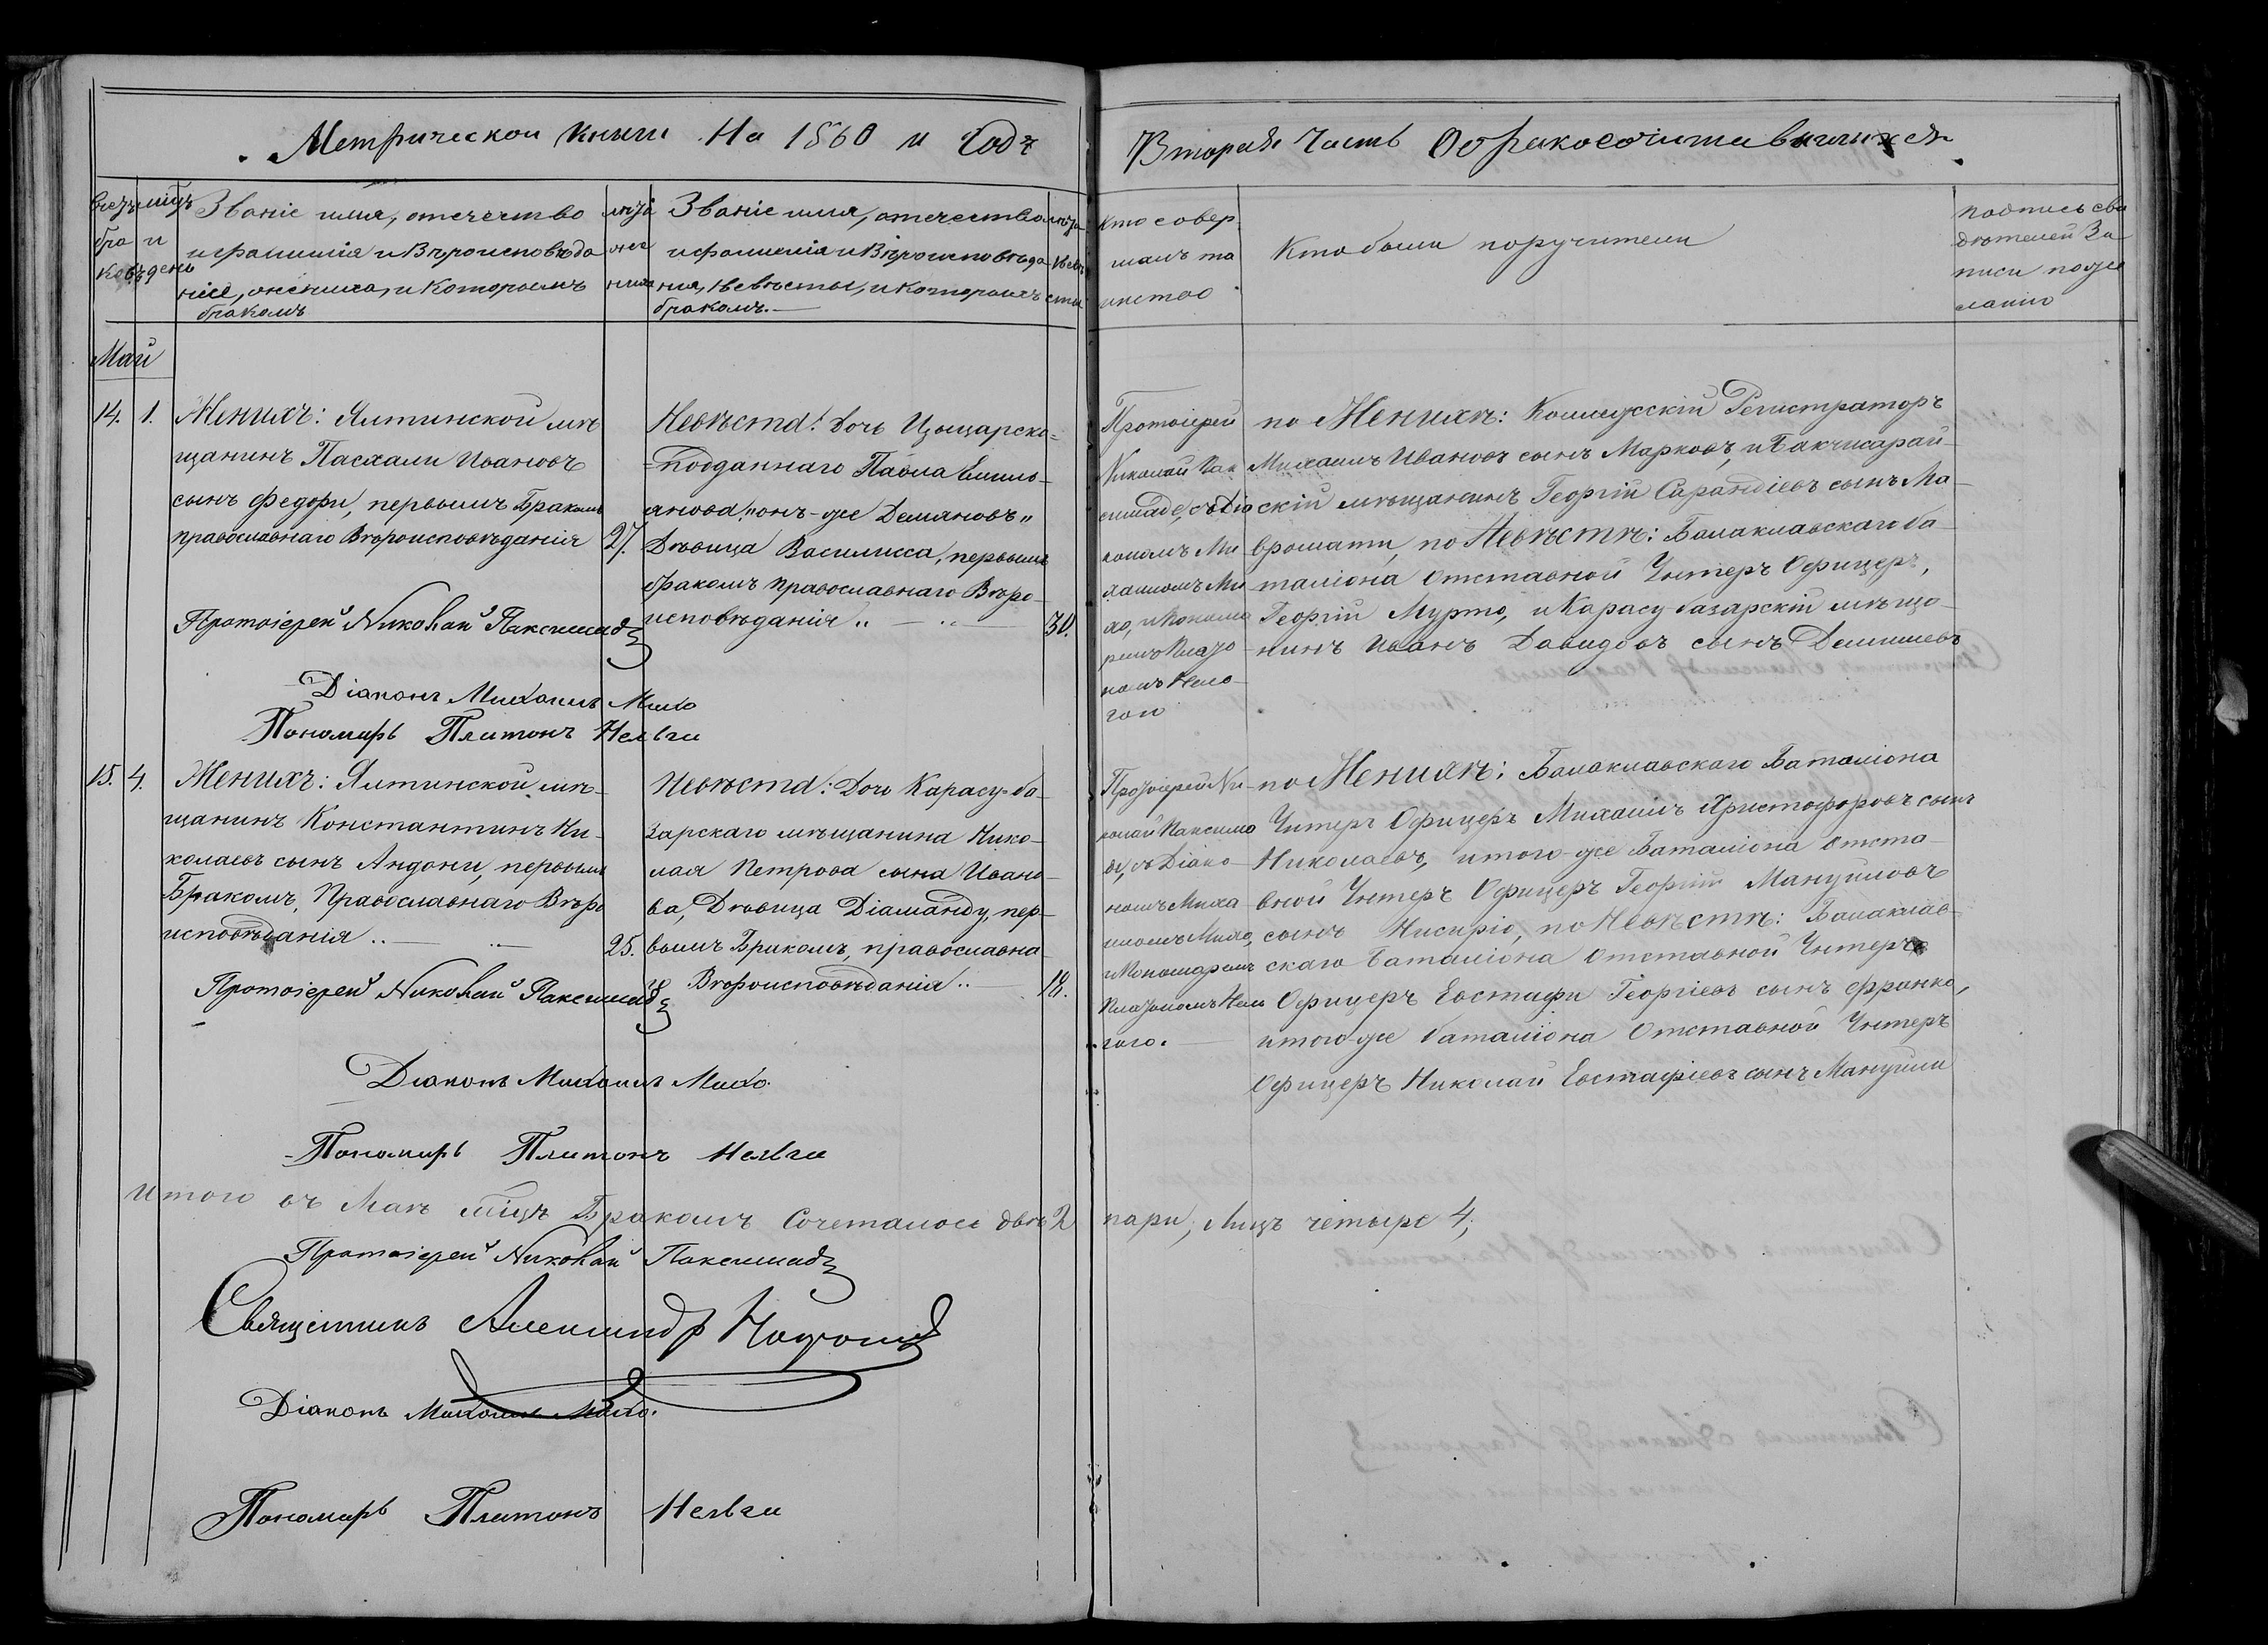 Метрической книги На 1860 и Годъ
Вторая Часть О бракосочитавшихся
Счетъ бра ковъ
мцъ и день
Званіе имя, отечество
и фамилія и Вѣроисповѣда
ніе, жениха, и Которымъ
бракомъ
лѣта
жениха
Званіе имя, отечество
и фамилія и Вѣроисповѣда
ния, Невѣсты, и которымъ
бракомъ.
лѣта
невѣсты
Кто совер
шалъ та
инство
Кто были поручители
подпись сви
дѣтелей За
писи по же
ланію
Май
14. 1.
Женихъ: Ялтинской мѣ
щанинъ Пасхали Ивановъ
сынъ Федори, первымъ Бракомъ
православнаго Вѣроисповѣданія 27.
Невѣста: Дочь Цыцарско-
подданнаго Павла Емилі-
анова, "онъ-же Демяновъ"
Дѣвица Василисса, первымъ
бракомъ православнаго Вѣро-
исповѣданія 30.
Протоіерей Николай Паксимаде
Діаконъ Михаилъ Михо
Пономарь Платонъ Нелгаи
Протоіерей
Николай Пак
симаде, съ Діа
кономъ Ми
хаиломъ Ми
хо, и Понома
ремъ Плато
номъ Нело-
гои
по Женихѣ: Коллежскій Регистраторъ
Михаилъ Ивановъ сынъ Марковъ, и Бакчисарай-
скій мѣщанинъ Георгій Сарандіевъ сынъ Ма-
вромати, по Невѣстѣ: Балаклавскаго ба-
таліона Отставной Унтеръ Офицеръ,
Георгій Мурто, и Карасу базарскій мѣща-
нинъ Иванъ Давидовъ сынъ Демишевъ
15. 4.
Женихъ: Ялтинской мѣ-
щанинъ Константинъ Ни-
колаевъ сынъ Андони, первымъ
Бракомъ, Православнаго Вѣро
исповѣданія 25.
Невѣста: Дочь Карасу-ба-
зарскаго мѣщанина Нико-
лая Петрова сына Ивано-
ва, Дѣвица Діаманду, пер-
вымъ Бракомъ, православна-
го Вѣроисповѣданія 18.
Протоіерей Николай Паксимаде
Діаконъ Михаилъ Михо.
Пономарь Платонъ Нелгаи
Протоіерей Ни-
колай Паксима
де, съ Діако-
номъ Миха
иломъ Михо,
и Пономаремъ
Платономъ Нело
гого.
по Женихѣ: Балаклавскаго Баталіона
Унтеръ Офицеръ Михаилъ Христофоровъ сынъ
Николаевъ, и того-же Баталіона Отста-
вной Унтеръ Офицеръ Георгій Мануиловъ
сынъ Нисиріо, по Невѣстѣ: Балаклав-
скаго Баталіона Отставной Унтеръ
Офицеръ Евстафи Георгіевъ сынъ Франко,
и того-же баталіона Отставной Унтеръ
Офицеръ Николай Евстафіевъ сынъ Мануили
Итого въ Маѣ мѣцѣ Бракомъ Сочеталось двѣ 2 пари, Лицъ четыре 4,
Протоіерей Николай Паксимаде
Священникъ Александръ
Діаконъ Михаилъ Михо.
Пономарь Платонъ Нелгаи